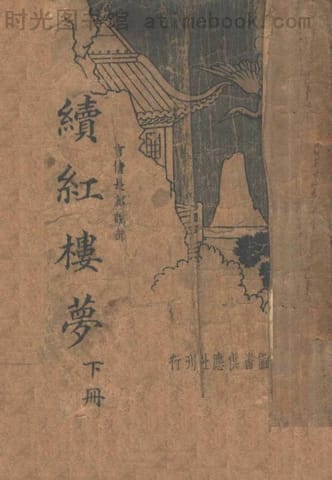 时光图书馆 - atimebook.com
續紅樓夢
下冊
書供應社刊行